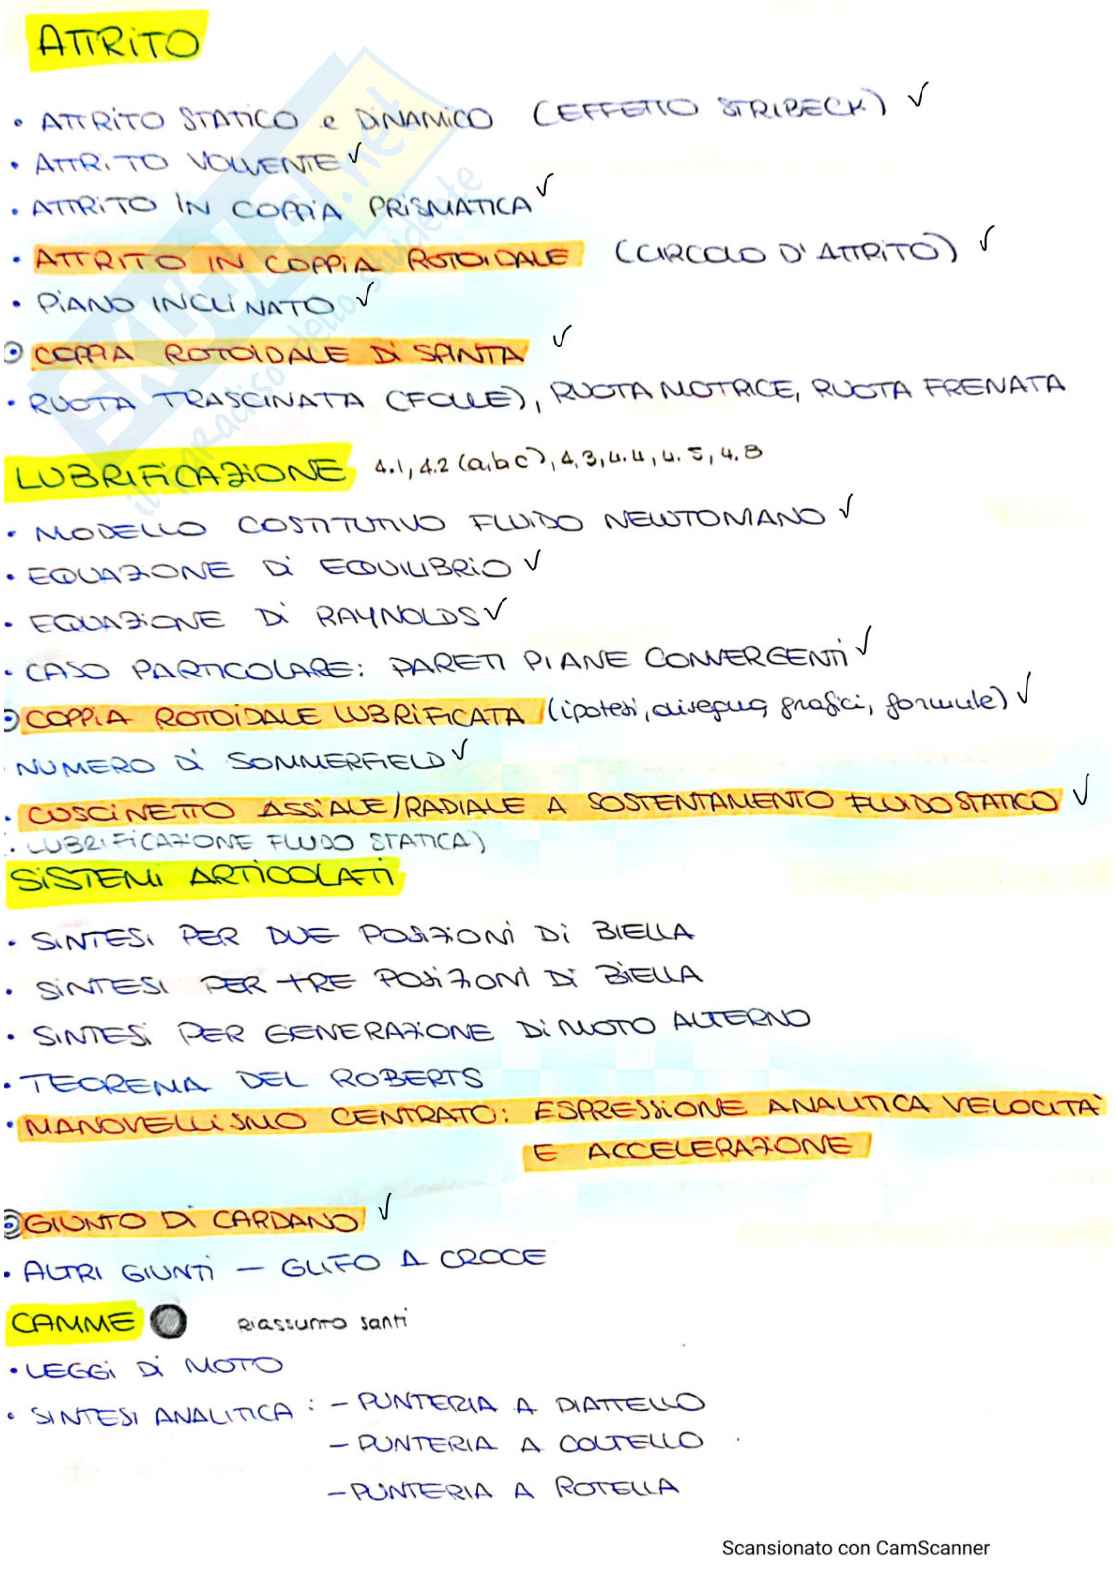 ATTRITO
• ATTRITO STATICO e DINAMICO (EFFETTO STRIBECK) ✓
• ATTRITO VOLVENTE ✓
• ATTRITO IN COPPIA PRISMATICA ✓
• ATTRITO IN COPPIA ROTOIDALE (CIRCOLO D'ATTRITO) ✓
• PIANO INCLINATO ✓
• COPPIA ROTOIDALE DI SPINTA ✓
• RUOTA TRASCINATA (FOLLE), RUOTA MOTRICE, RUOTA FRENATA
LUBRIFICAZIONE 4.1, 4.2 (a,b,c), 4.3, 4.4, 4.5, 4.8
• MODELLO COSTITUTIVO FLUIDO NEWTONIANO ✓
• EQUAZIONE DI EQUILIBRIO ✓
• EQUAZIONE DI RAYNOLDS ✓
• CASO PARTICOLARE: PARETI PIANE CONVERGENTI ✓
• COPPIA ROTOIDALE LUBRIFICATA (ipotesi, disegno, grafici, formule) ✓
NUMERO DI SOMMERFIELD ✓
• CUSCINETTO ASSIALE/RADIALE A SOSTENTAMENTO FLUIDOSTATICO ✓
LUBRIFICAZIONE FLUIDO STATICA)
SISTEMI ARTICOLATI
• SINTESI PER DUE POSIZIONI DI BIELLA
• SINTESI PER TRE POSIZIONI DI BIELLA
• SINTESI PER GENERAZIONE DI MOTO ALTERNO
• TEOREMA DEL ROBERTS
• MANOVELLISMO CENTRATO: ESPRESSIONE ANALITICA VELOCITA'
E ACCELERAZIONE
• GIUNTO DI CARDANO ✓
• ALTRI GIUNTI — GLIFO A CROCE
CAMME riassunto santi
• LEGGI DI MOTO
• SINTESI ANALITICA : – PUNTERIA A PIATTELLO
– PUNTERIA A COLTELLO
– PUNTERIA A ROTELLA
Scansionato con CamScanner
SKUOLA.net
il paradiso dello studente